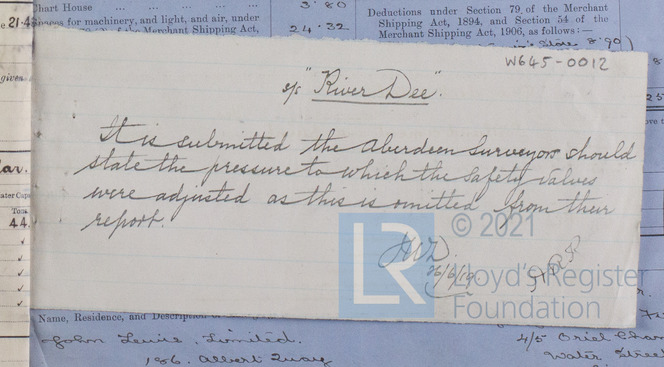 Chart House ... ... ... ... 3.80
Spaces for machinery, and light, and air, under
Merchant Shipping Act, 24.32
Deductions under Section 79 of the Merchant
Shipping Act, 1894, and Section 54 of the
Merchant Shipping Act, 1906, as follows:—
Store 8.90)
W645-0012
s/s "River Dee".
It is submitted the Aberdeen Surveyors should
state the pressure to which the safety valves
were adjusted as this is omitted from their
report.
26/6/19
LR
© 2021
Lloyd's Register
Foundation
Name, Residence, and Description of
John Lewis, Limited.
186, Albert Quay
4/5 Oriel
Water Street
21.4
given
Tons
44